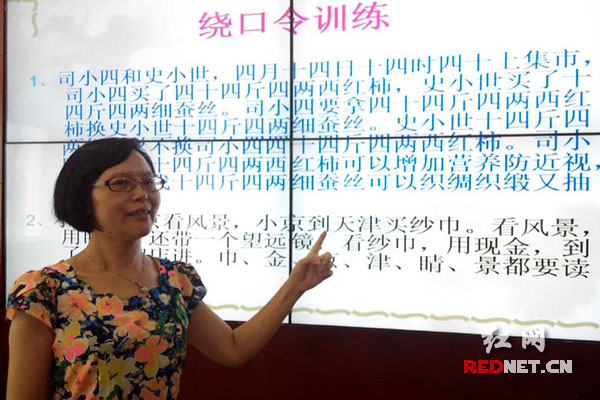 绕口令训练
1、司小四和史小世，四月十四日十四时四十上集市，
司小四买了四十四斤四两西红柿，史小世买了十
四斤四两细蚕丝。司小四要拿四十四斤四两西红
柿换史小世十四斤四两细蚕丝。史小世十四斤四
两 不换司小四四十四斤四两西红柿。司小
十四斤四两西红柿可以增加营养防近视，
十四斤四两细蚕丝可以织绸织缎又抽
2、 京看风景，小京到天津买纱巾。看风景，
用 还带一个望远镜 看纱巾，用现金，到
店讲。巾、金、 、津、睛、景都要读
红网
REDNET.CN